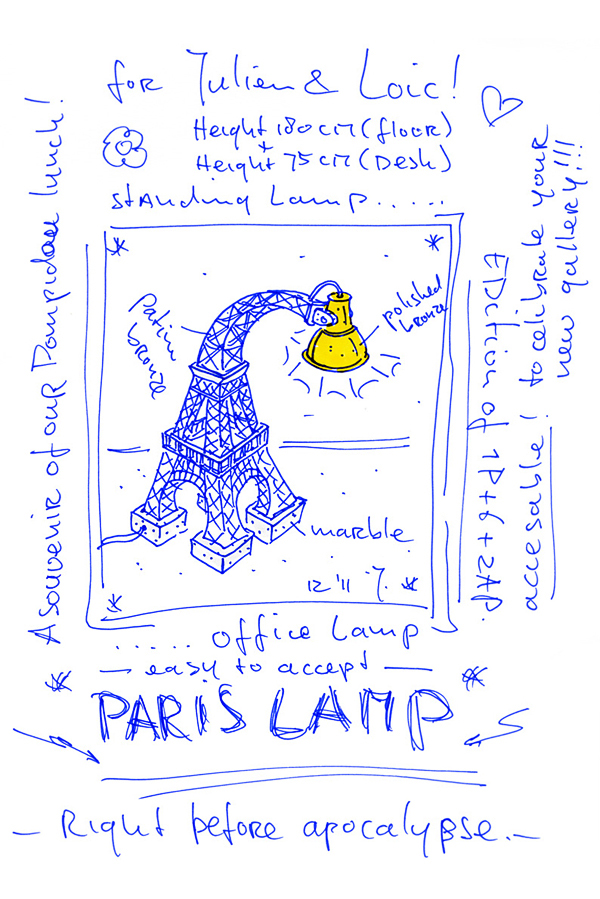 for Julien & Loic!
Height 180cm (floor)
+
Height 75cm (Desk)
standing Lamp.....
A souvenir of our Pompidou lunch!
patina
bronze
polished
bronze
marble
12'11
Edition of 1P+6+2AP.
accesable! to celibrate your
new gallery!!!
...... office Lamp
— easy to accept —
PARIS LAMP
— Right before apocalypse. —